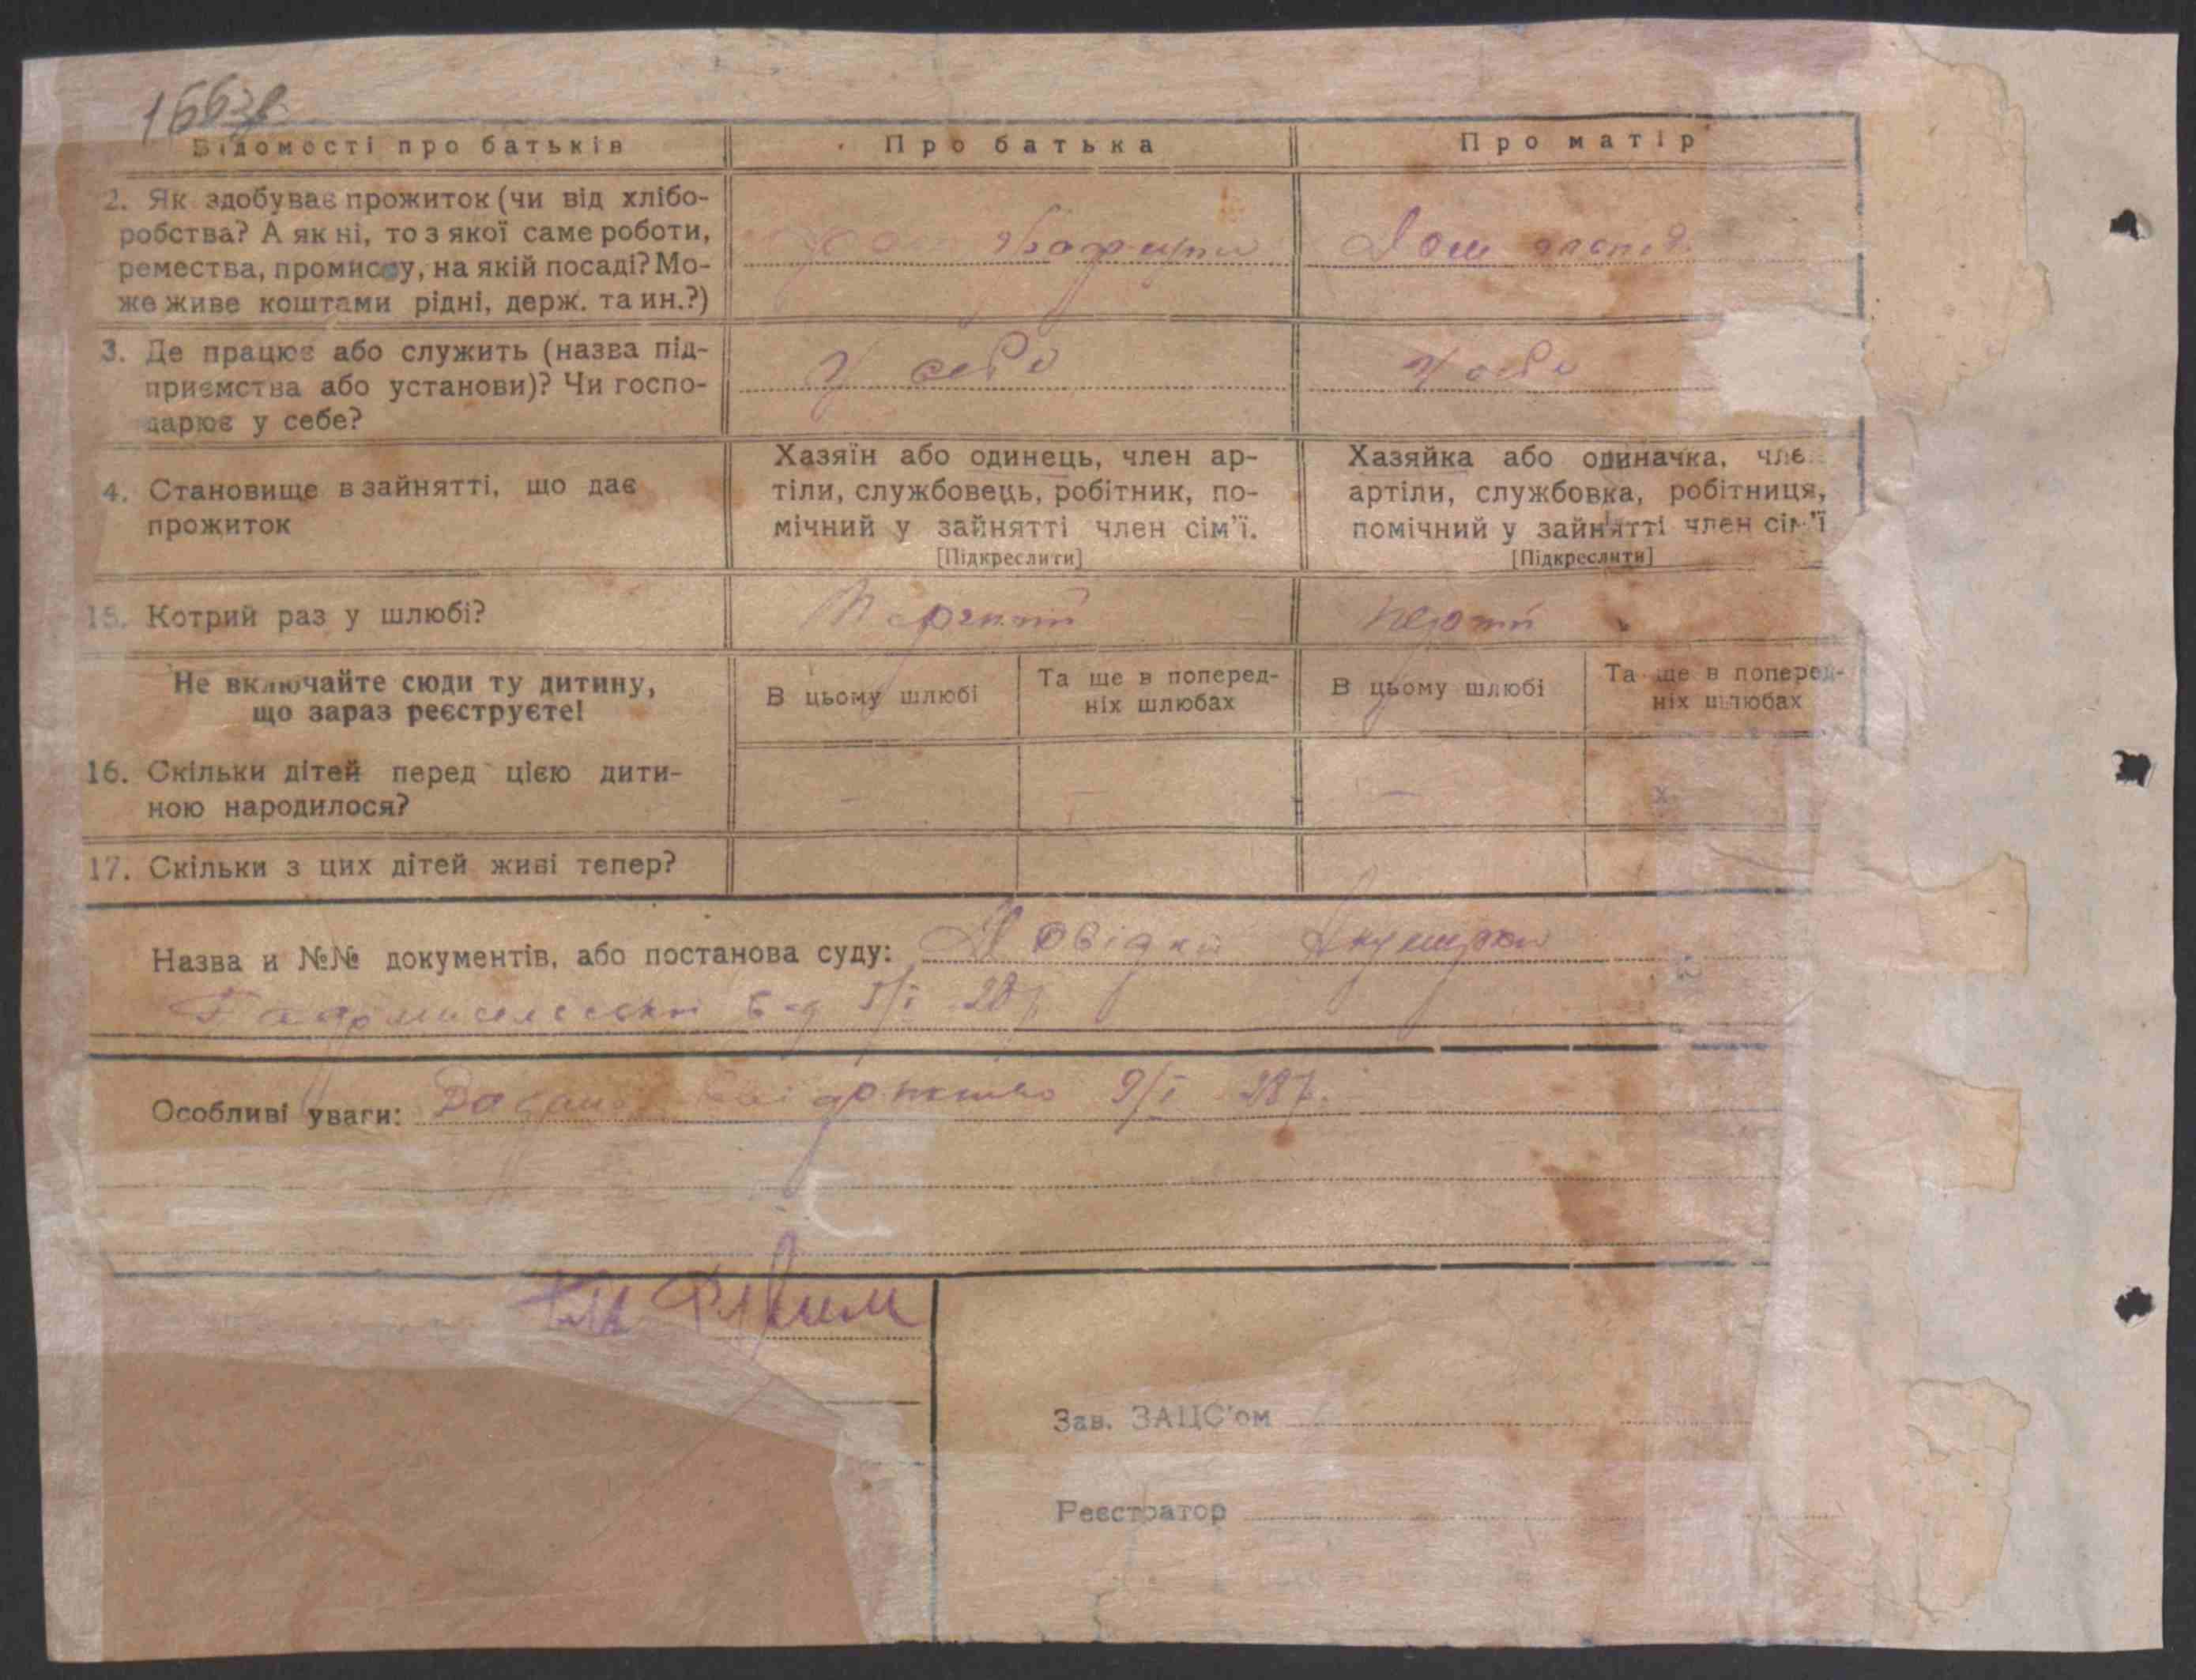 166зв
Відомості про батьків
Про батька
Про матір
2. Як здобуває прожиток (чи від хлібо-
робства? А як ні, то з якої саме роботи,
ремества, промислу, на якій посаді? Мо-
же живе коштами рідні, держ. та ин.?)
Дом господ.
3. Де працює або служить (назва під-
приємства або установи)? Чи госпо-
дарює у себе?
У себе
У себе
4. Становище в зайнятті, що дає
прожиток
Хазяїн або одинець, член ар-
тіли, службовець, робітник, по-
мічний у зайнятті член сім'ї.
[Підкреслити]
Хазяйка або одиначка, член
артіли, службовка, робітниця,
помічний у зайнятті член сім'ї
[Підкреслити]
15. Котрий раз у шлюбі?
Перший
перший
Не включайте сюди ту дитину,
що зараз реєструєте!
В цьому шлюбі
Та ще в поперед-
ніх шлюбах
В цьому шлюбі
Та ще в поперед-
ніх шлюбах
16. Скільки дітей перед цією дити-
ною народилося?
–
–
–
х
17. Скільки з цих дітей живі тепер?
Назва и №№ документів, або постанова суду: Довідка Акушерки
5/I 28
Особливі уваги: Видано свідоцтво 9/I 28 р.
Зав. ЗАЦС'ом
Реєстратор